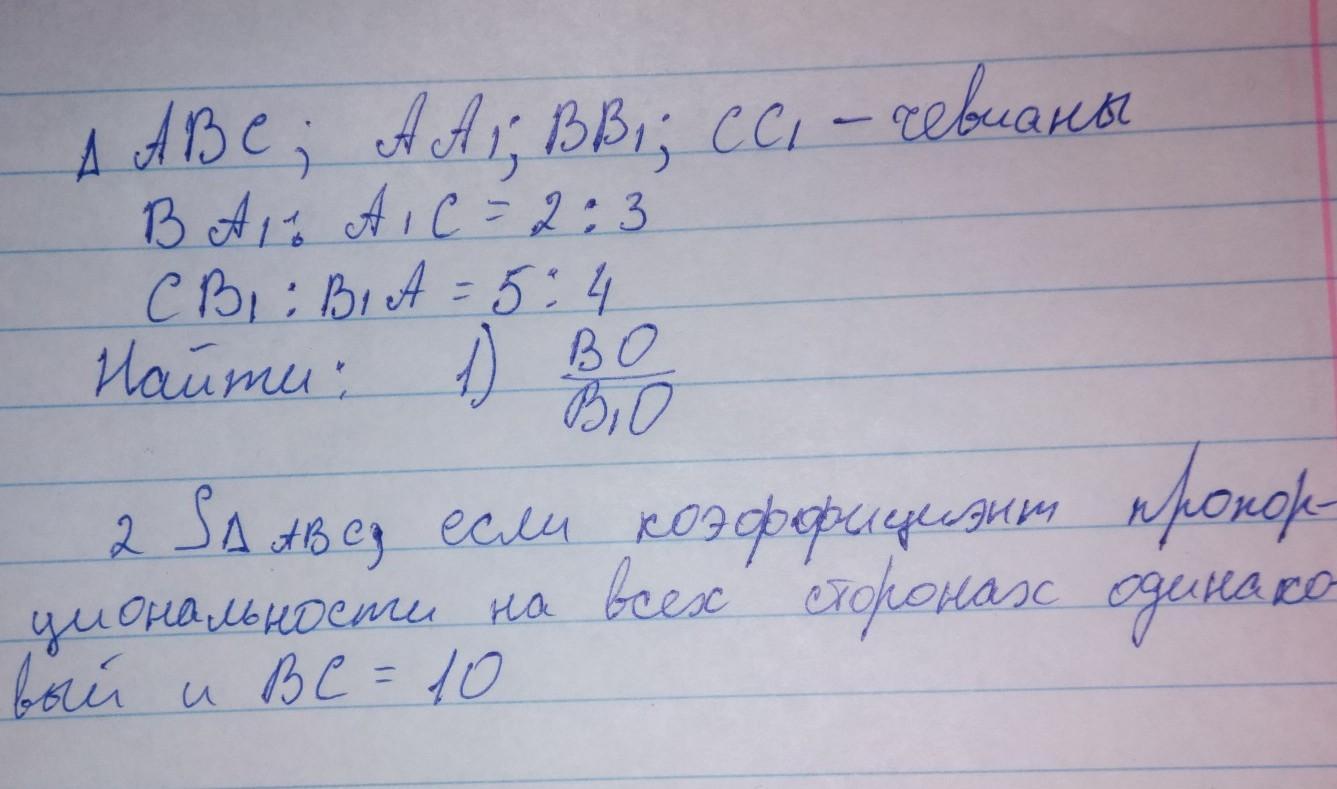 Δ ABC; AA₁; BB₁; CC₁ – чевианы
BA₁ : A₁C = 2 : 3
CB₁ : B₁A = 5 : 4
Найти: 1) BO/B₁O
2 SΔABC, если коэффициэнт пропор-
циональности на всех сторонах одинако
вый и BC = 10